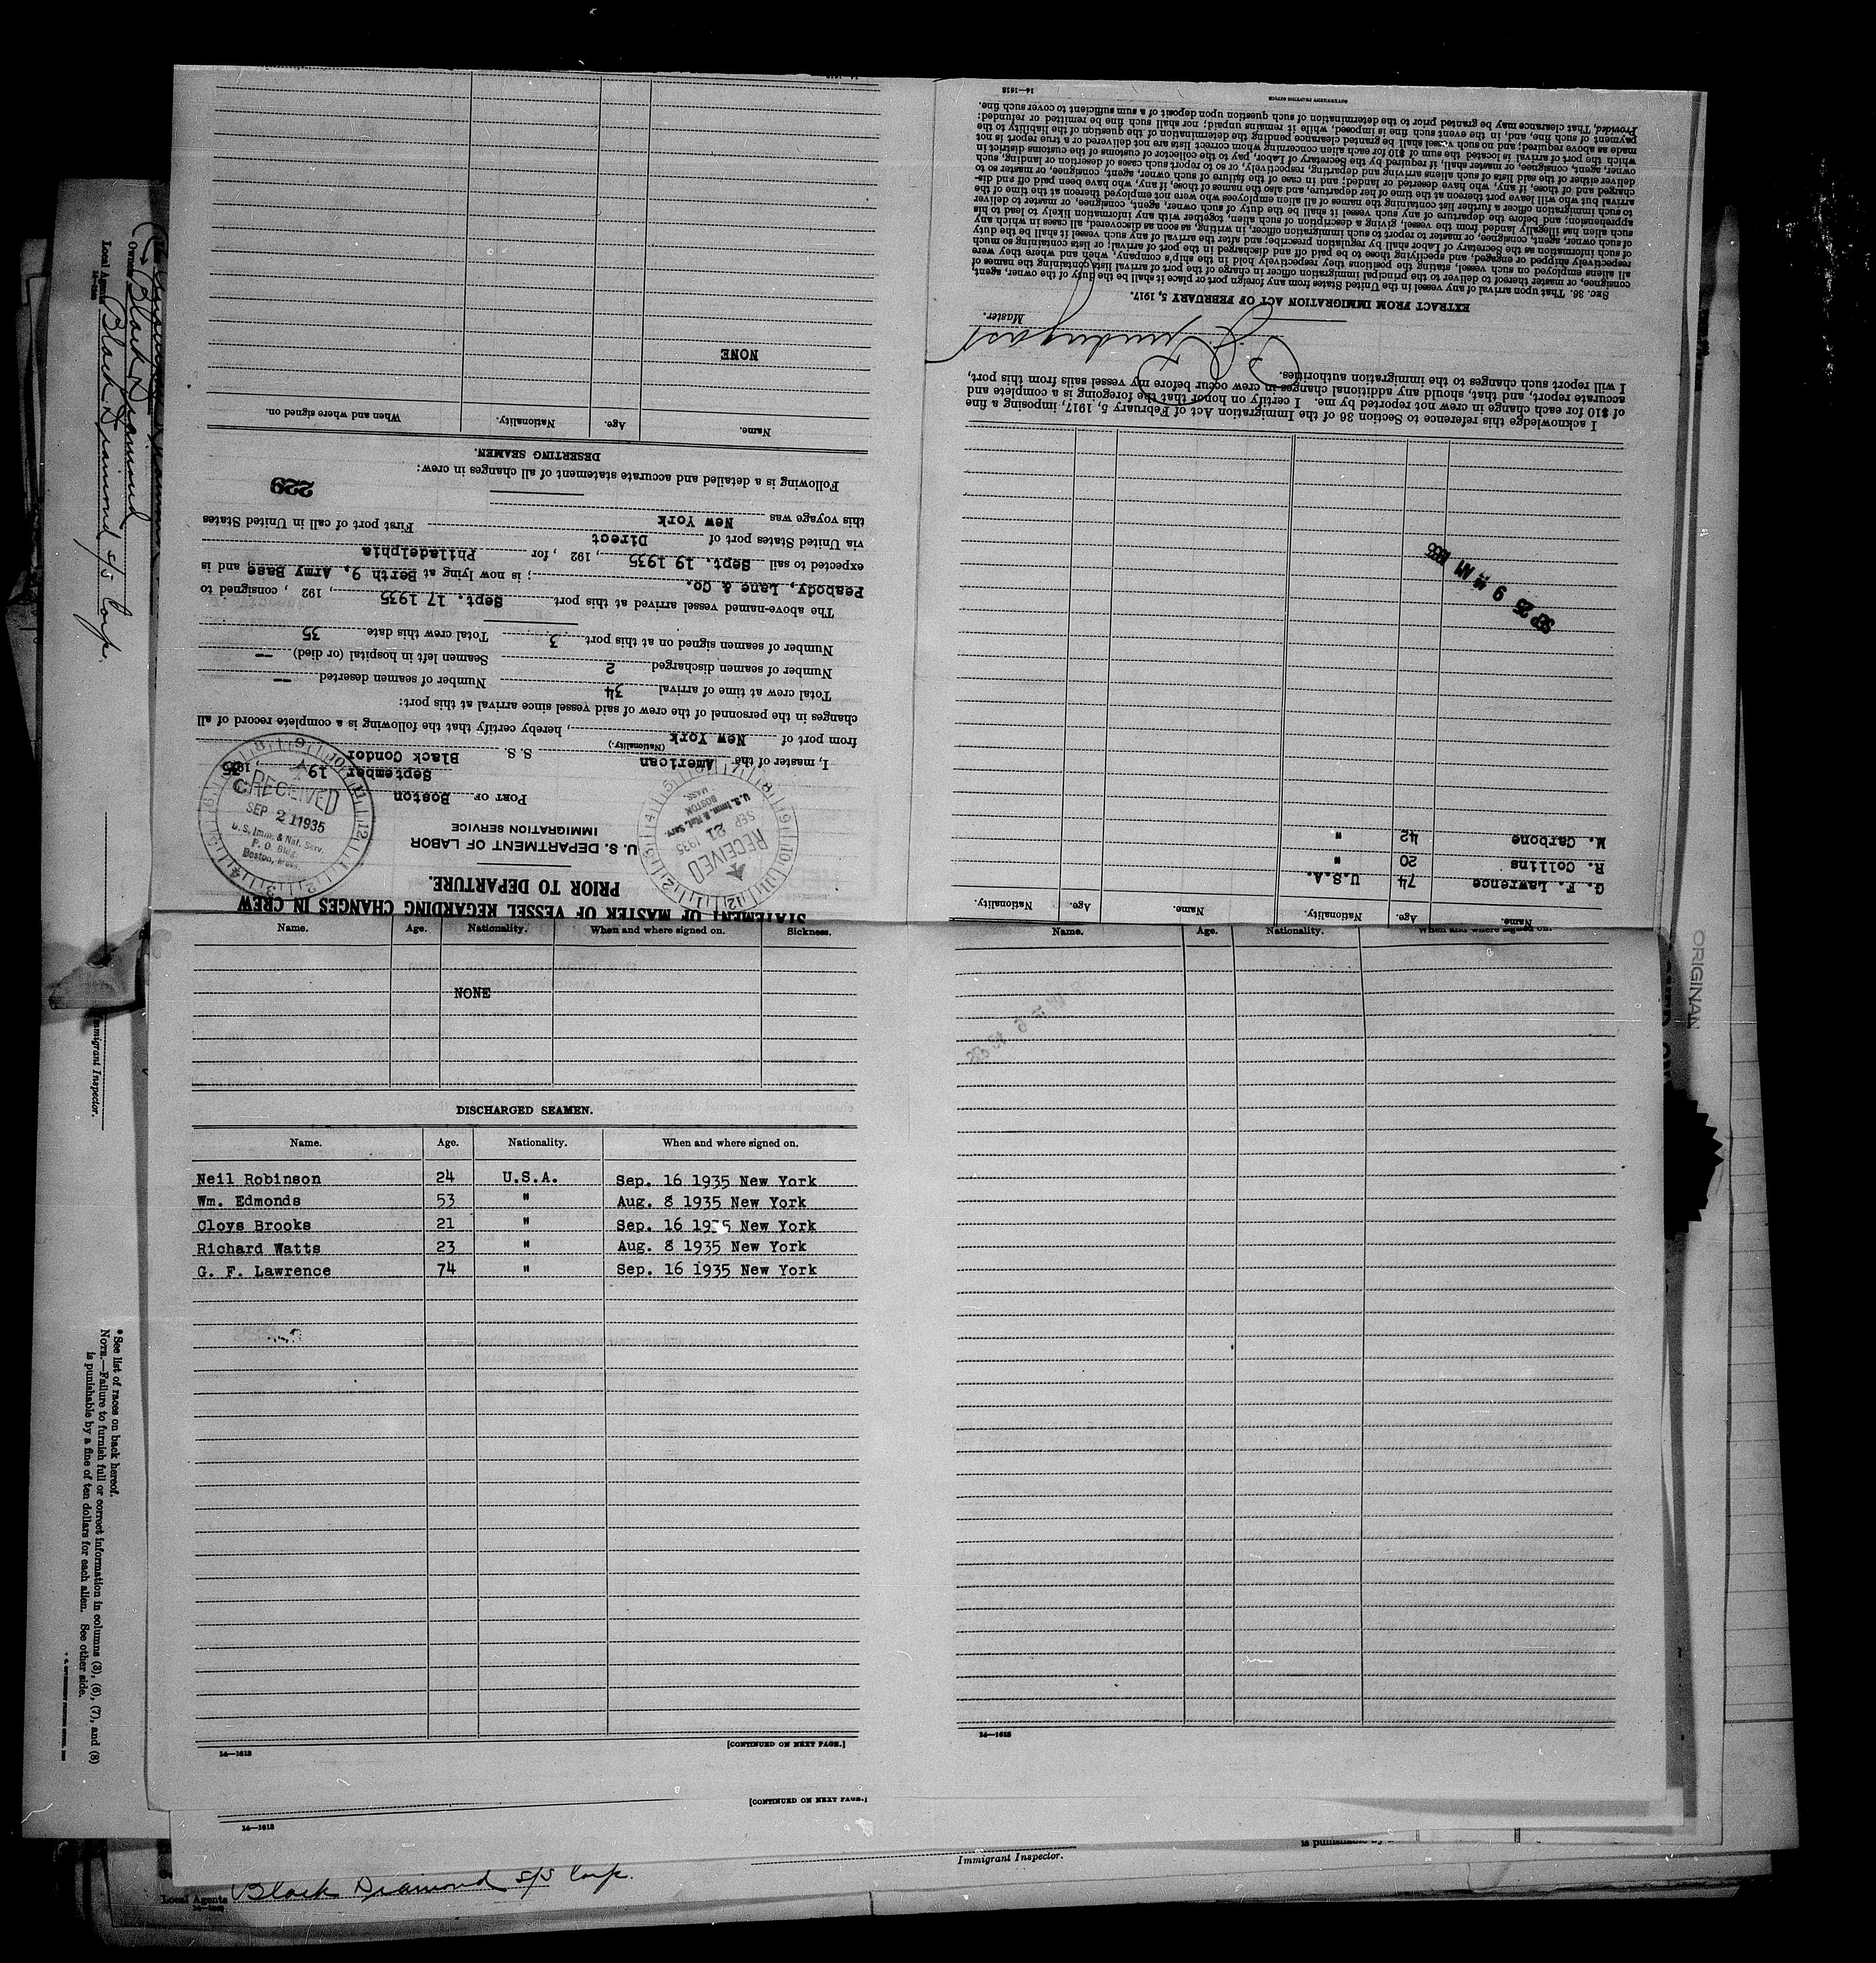 STATEMENT OF MASTER OF VESSEL REGARDING CHANGES IN CREW
PRIOR TO DEPARTURE.
U. S. DEPARTMENT OF LABOR
IMMIGRATION SERVICE
PORT OF Boston
September 19, 1935
RECEIVED
SEP 21 1935
U. S. Imm. & Nat. Serv.
P. O. Bldg.
Boston, Mass.
RECEIVED
SEP 21 1935
U. S. Imm. & Nat. Serv.
BOSTON
MASS.
I, master of the American S. S. Black Condor
(Nationality.)
from port of New York, hereby certify that the following is a complete record of all
changes in the personnel of the crew of said vessel since arrival at this port:
Total crew at time of arrival 34 Number of seamen deserted —
Number of seamen discharged 2 Seamen left in hospital (or died) —
Number of seamen signed on at this port 3 Total crew this date 35
The above-named vessel arrived at this port Sept. 17 1935, 192 , consigned to
Peabody, Lane & Co. ; is now lying at Berth 9, Army Base and is
expected to sail Sept. 19 1935, 192 , for Philadelphia
via United States port of Direct First port of call in United States
this voyage was New York
229
Following is a detailed and accurate statement of all changes in crew:
DESERTING SEAMEN.
Name. Age. Nationality. When and where signed on.
NONE
Name. Age. Nationality. Name. Age. Nationality.
G. F. Lawrence 74 U.S.A.
R. Collins 20 "
M. Carbone 42 "
SEP 25 9 AM 1935
I acknowledge this reference to Section 36 of the Immigration Act of February 5, 1917, imposing a fine
of $10 for each change in crew not reported by me. I certify on honor that the foregoing is a complete and
accurate report, and that, should any additional changes in crew occur before my vessel sails from this port,
I will report such changes to the immigration authorities.
Master.
EXTRACT FROM IMMIGRATION ACT OF FEBRUARY 5, 1917.
SEC. 36. That upon arrival of any vessel in the United States from any foreign port or place it shall be the duty of the owner, agent,
consignee, or master thereof to deliver to the principal immigration officer in charge of the port of arrival lists containing the names of
all aliens employed on such vessel, stating the positions they respectively hold in the ship's company, when and where they were
respectively shipped or engaged, and specifying those to be paid off and discharged in the port of arrival; or lists containing so much
of such information as the Secretary of Labor shall by regulation prescribe; and after the arrival of any such vessel it shall be the duty
of such owner, agent, consignee, or master to report to such immigration officer, in writing, as soon as discovered, all cases in which any
such alien has illegally landed from the vessel, giving a description of such alien, together with any information likely to lead to his
apprehension; and before the departure of any such vessel it shall be the duty of such owner, agent, consignee, or master to deliver
to such immigration officer a further list containing the names of all alien employees who were not employed thereon at the time of the
arrival but who will leave port thereon at the time of her departure, and also the names of those, if any, who have been paid off and dis-
charged and of those, if any, who have deserted or landed; and in case of the failure of such owner, agent, consignee, or master so to
deliver either of the said lists of such aliens arriving and departing, respectively, or so to report such cases of desertion or landing, such
owner, agent, consignee, or master shall, if required by the Secretary of Labor, pay to the collector of customs of the customs district in
which the port of arrival is located the sum of $10 for each alien concerning whom correct lists are not delivered or a true report is not
made as above required; and no such vessel shall be granted clearance pending the determination of the question of the liability to the
payment of such fine, and, in the event such fine is imposed, while it remains unpaid; nor shall such fine be remitted or refunded:
Provided, That clearance may be granted prior to the determination of such question upon deposit of a sum sufficient to cover such fine.
14—1613
GOVERNMENT PRINTING OFFICE
Name. Age. Nationality. When and where signed on. Sickness.
NONE
DISCHARGED SEAMEN.
Name. Age. Nationality. When and where signed on.
Neil Robinson 24 U.S.A. Sep. 16 1935 New York
Wm. Edmonds 53 " Aug. 8 1935 New York
Cloys Brooks 21 " Sep. 16 1935 New York
Richard Watts 23 " Aug. 8 1935 New York
G. F. Lawrence 74 " Sep. 16 1935 New York
14—1613
[CONTINUED ON NEXT PAGE.]
Name. Age. Nationality. When and where signed on.
14—1613
[CONTINUED ON NEXT PAGE.]
14—1613
Immigrant Inspector.
Local Agents Black Diamond S/S Corp.
Owners Black Diamond
Local Agents Black Diamond S/S Corp.
Immigrant Inspector.
*See list of races on back hereof.
NOTE.—Failure to furnish full or correct information in columns (3), (6), (7), and (8)
is punishable by a fine of ten dollars for each alien. See other side.
ORIGINAL